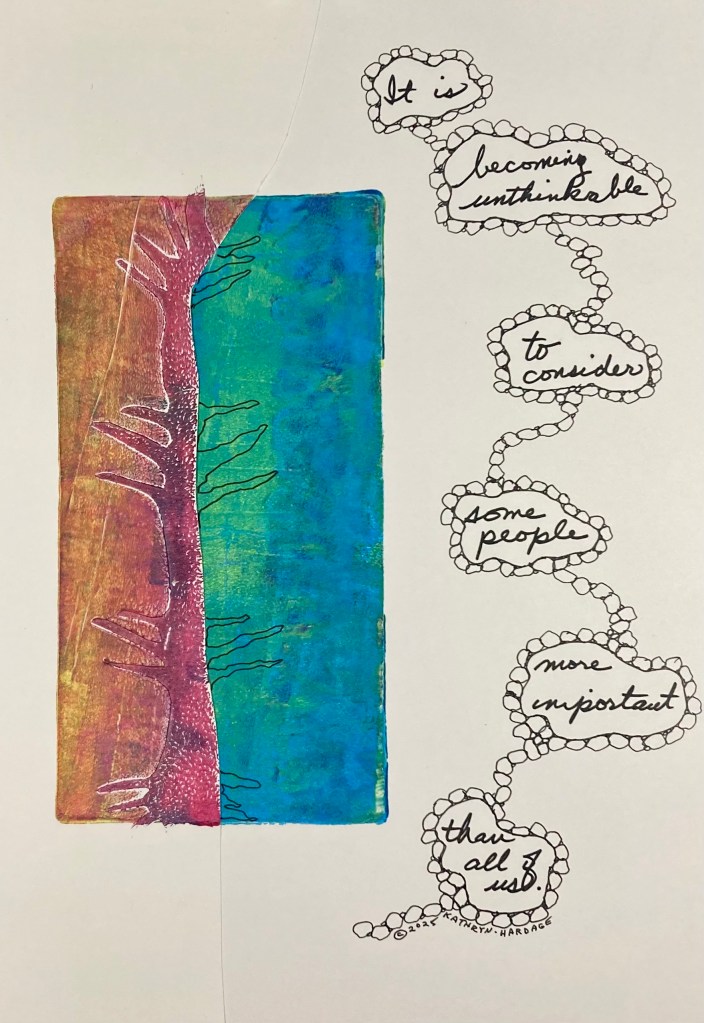 It is
becoming
unthinkable
to
consider
some
people
more
important
than
all of
us.
© 2025 KATHRYN · HARDAGE